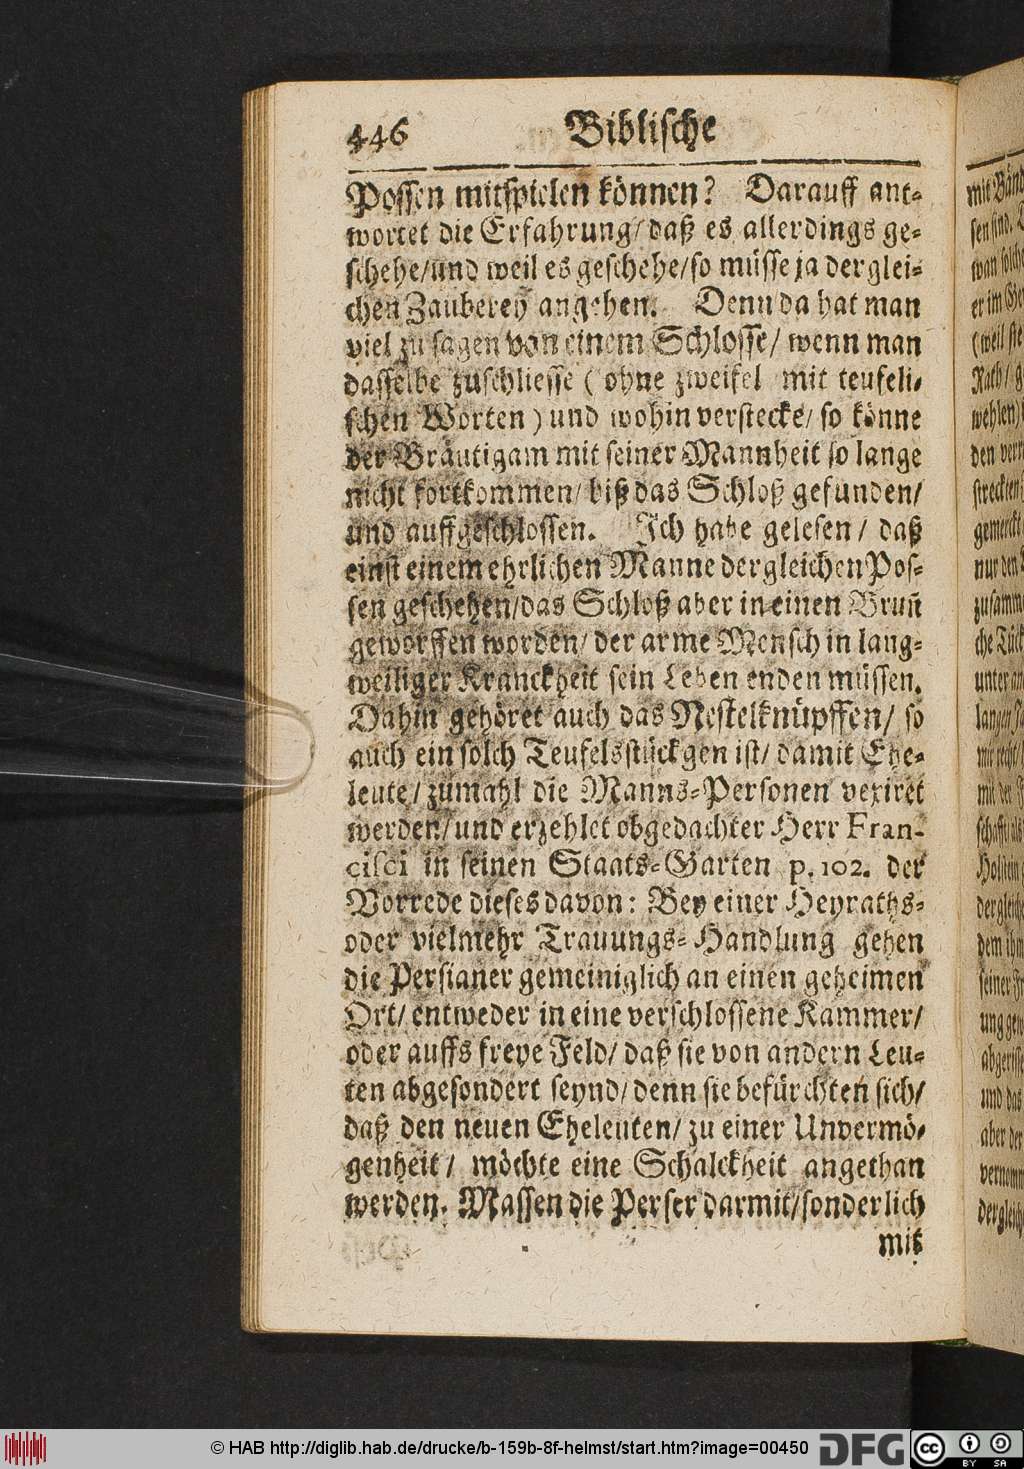 446 Biblische
Possen mitspielen können? Darauff ant-
wortet die Erfahrung/ daß es allerdings ge-
schehe/ und weil es geschehe/ so müsse ja derglei-
chen Zauberey angehen. Denn da hat man
viel zu sagen von einem Schlosse/ wenn man
dasselbe zuschliesse ( ohne zweifel mit teufeli-
schen Worten ) und wohin verstecke/ so könne
der Bräutigam mit seiner Mannheit so lange
nicht fortkommen/ biß das Schloß gefunden/
und auffgeschlossen. Ich habe gelesen / daß
einst einem ehrlichen Manne dergleichen Pos-
sen geschehen/ das Schloß aber in einen Brun̄
geworffen worden/ der arme Mensch in lang-
weiliger Kranckheit sein Leben enden müssen.
Dahin gehöret auch das Nestelknüpffen/ so
auch ein solch Teufelsstückgen ist/ damit Ehe-
leute/ zumahl die Manns-Personen vexiret
werden/ und erzehlet obgedachter Herr Fran-
cisci in seinen Staats-Garten p. 102. der
Vorrede dieses davon: Bey einer Heyraths-
oder vielmehr Trauungs-Handlung gehen
die Persianer gemeiniglich an einen geheimen
Ort/ entweder in eine verschlossene Kammer/
oder auffs freye Feld/ daß sie von andern Leu-
ten abgesondert seynd/ denn sie befürchten sich/
daß den neuen Eheleuten/ zu einer Unvermö-
genheit / möchte eine Schalckheit angethan
werden. Massen die Perser darmit/ sonderlich
mit
mit Bänd
sen sind.
wan solche
er im Ge
(weil sie
Rath/ g
wehlen)
den verr
streckten
gemerckt
nur den
zusamme
che Tück
unter an
langer
mir recht/
mit der
schafft/
Holstein
dergleiche
dem ihm
seiner Fr
ung gen
abgerisse
und das
aber der
vernomm
dergleich
© HAB http://diglib.hab.de/drucke/b-159b-8f-helmst/start.htm?image=00450 DFG cc BY SA